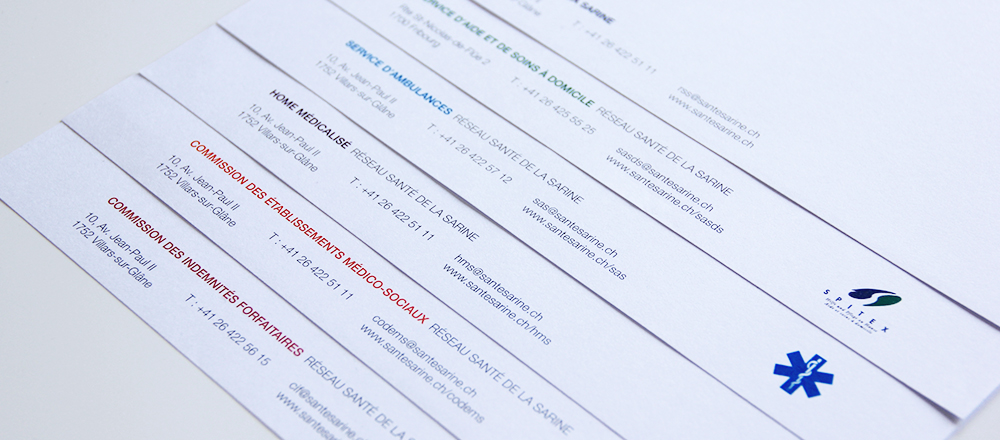 SARINE
T : +41 26 422 51 11
rss@santesarine.ch
www.santesarine.ch
SERVICE D'AIDE ET DE SOINS À DOMICILE RÉSEAU SANTÉ DE LA SARINE
Rte St-Nicolas-de-Flüe 2
1700 Fribourg
T : +41 26 425 55 25
sasds@santesarine.ch
www.santesarine.ch/sasds
SPITEX
SERVICE D'AMBULANCES RÉSEAU SANTÉ DE LA SARINE
10, Av. Jean-Paul II
1752 Villars-sur-Glâne
T : +41 26 422 57 12
sas@santesarine.ch
www.santesarine.ch/sas
HOME MÉDICALISÉ RÉSEAU SANTÉ DE LA SARINE
10, Av. Jean-Paul II
1752 Villars-sur-Glâne
T : +41 26 422 51 11
hms@santesarine.ch
www.santesarine.ch/hms
COMMISSION DES ÉTABLISSEMENTS MÉDICO-SOCIAUX RÉSEAU SANTÉ DE LA SARINE
10, Av. Jean-Paul II
1752 Villars-sur-Glâne
T : +41 26 422 51 11
codems@santesarine.ch
www.santesarine.ch/codems
COMMISSION DES INDEMNITÉS FORFAITAIRES RÉSEAU SANTÉ DE LA
10, Av. Jean-Paul II
1752 Villars-sur-Glâne
T : +41 26 422 56 15
cif@santesarine.ch
www.santesarine.ch